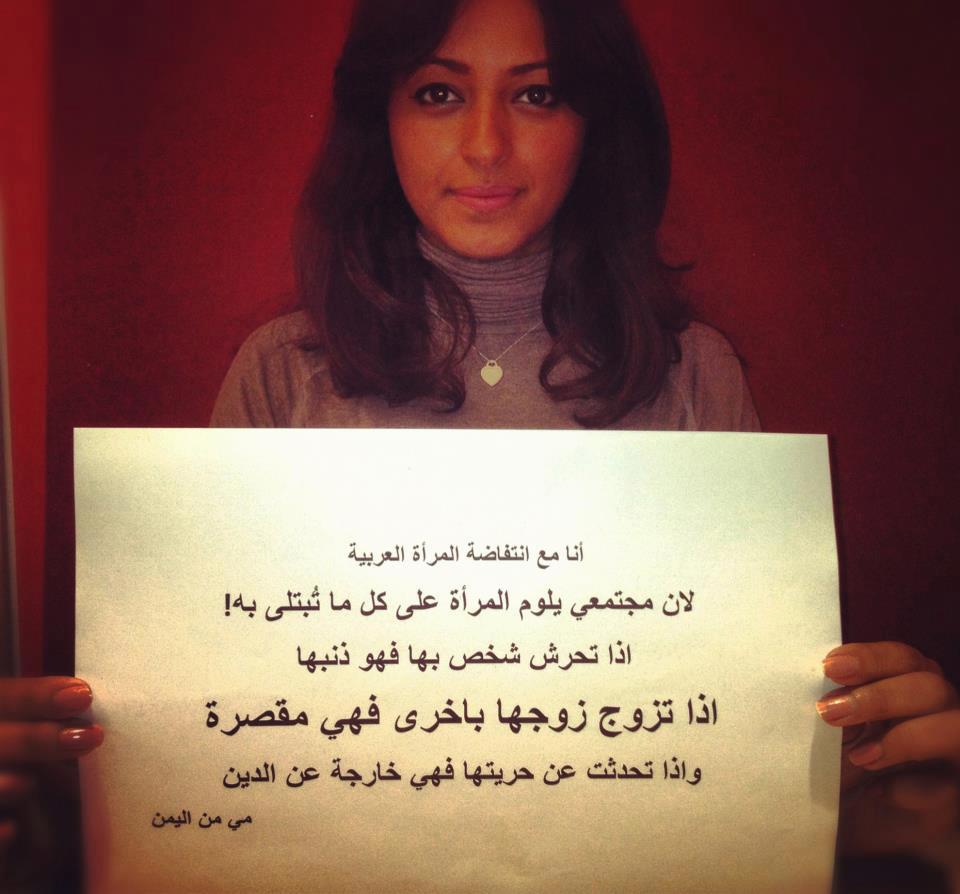 أنا مع انتفاضة المرأة العربية
لان مجتمعي يلوم المرأة على كل ما تُبتلى به!
اذا تحرش شخص بها فهو ذنبها
اذا تزوج زوجها باخرى فهي مقصرة
واذا تحدثت عن حريتها فهي خارجة عن الدين
مي من اليمن